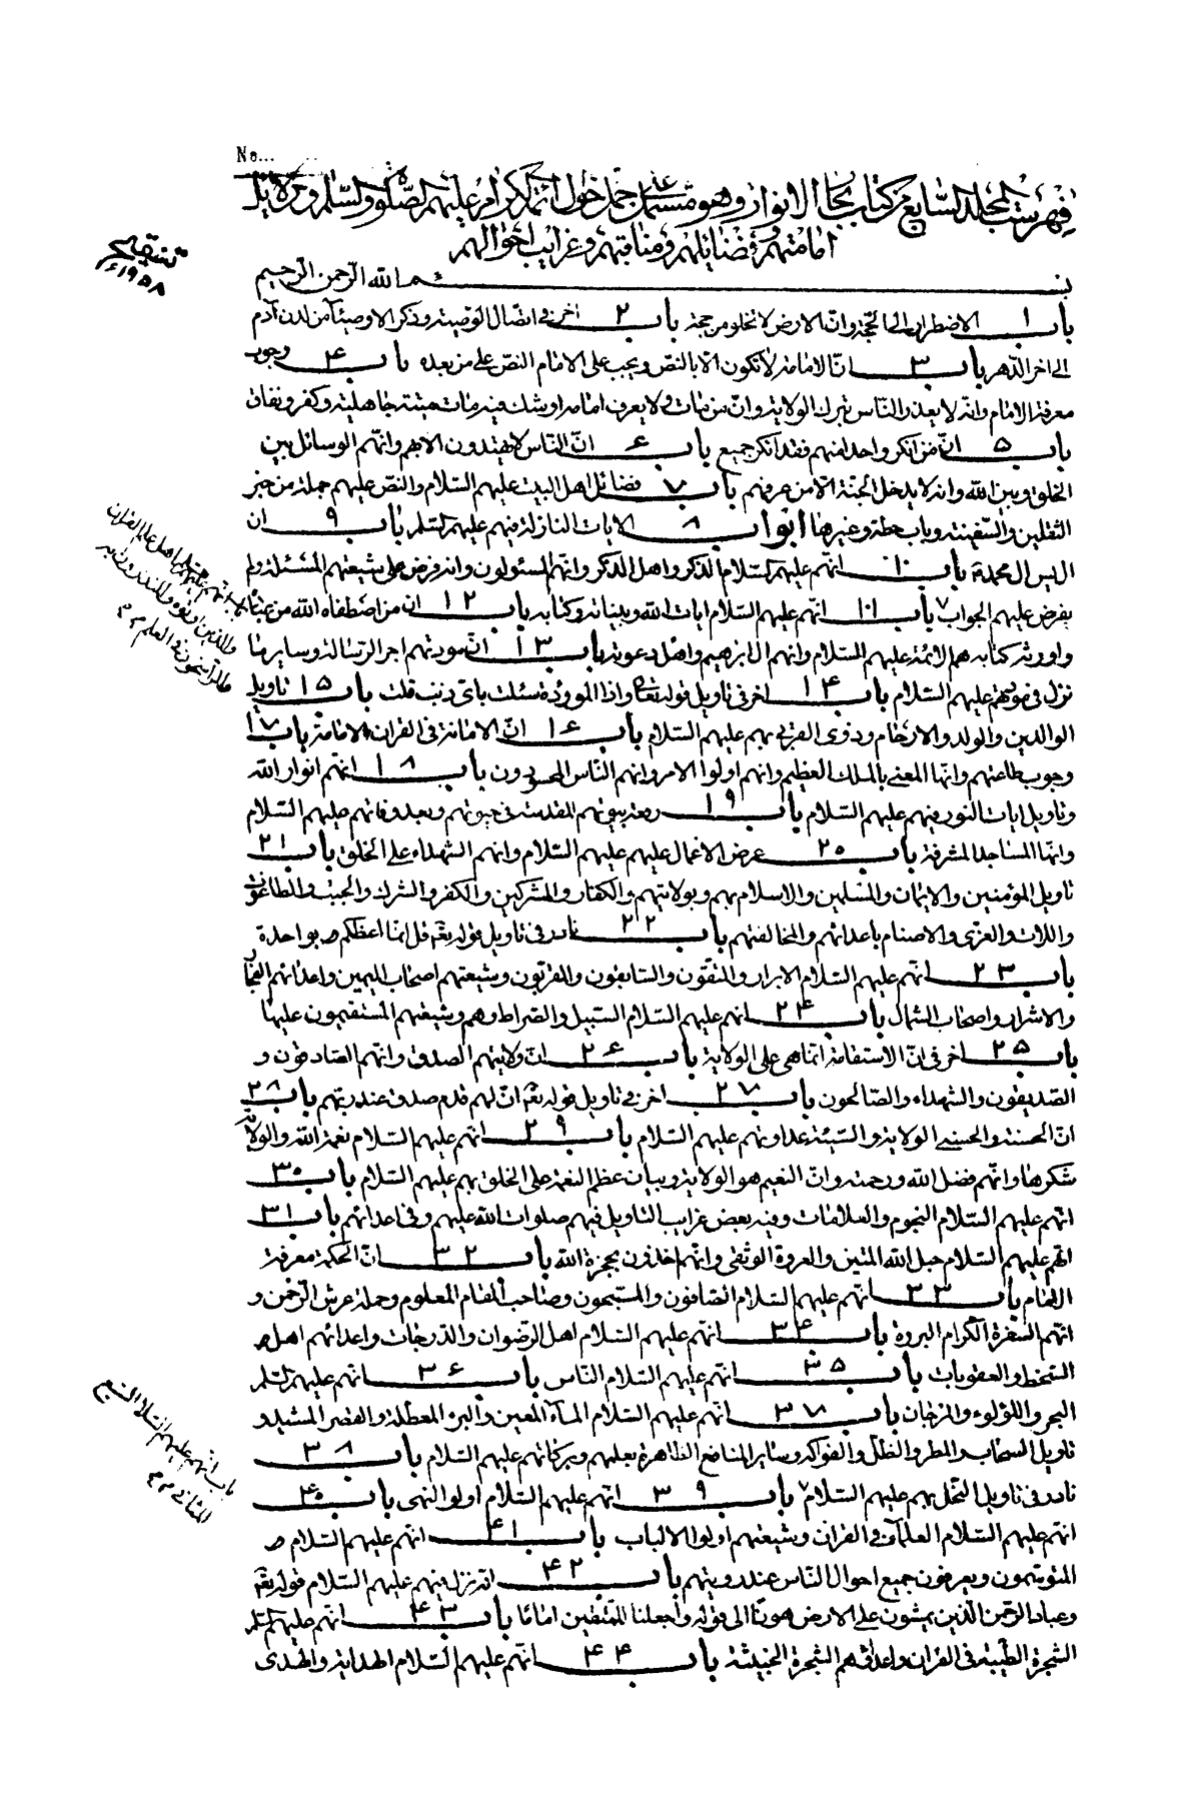 No...
فهرست المجلد السابع من كتاب بحار الانوار وهو مشتمل على جمل احوال ائمة الكرام عليهم الصلوة والسلام ودلائل
امامتهم وفضائلهم ومناقبهم وغرايب احوالهم
تنقيح
۱۹۵۸ء
بسم الله الرحمن الرحيم
باب ۱ الاضطرار الى الحجة وان الارض لا تخلو من حجة باب ۲ اخر في اتصال الوصية وذكر الاوصياء من لدن ادم
الى اخر الدهر باب ۳ ان الامامة لا تكون الا بالنص ويجب على الامام النص على من بعده باب ۴ وجوب
معرفة الامام وانه لا يعذر الناس بترك الولاية وان من مات ولا يعرف امامه اوشك فيه مات ميتة جاهلية وكفر ونفاق
باب ۵ ان من انكر واحدا منهم فقد انكر جميع باب ۶ ان الناس لا يهتدون الا بهم وانهم الوسائل بين
الخلق وبين الله وانه لا يدخل الجنة الا من عرفهم باب ۷ فضائل اهل البيت عليهم السلام والنص عليهم جملة من خبر
الثقلين والسفينة وباب حطة وغيرها ابواب ۸ الايات النازلة فيهم عليهم السلم باب ۹ ان
ال يس ال محمد باب ۱۰ انهم عليهم السلام الذكر واهل الذكر وانهم المسئولون وانه فرض على شيعتهم المسئلة ولم
يفرض عليهم الجواب باب ۱۱ انهم عليهم السلام ايات الله وبيناته وكتابه باب ۱۲ ان من اصطفاه الله من عباده
واورثه كتابه هم الائمة عليهم السلام وانهم ال ابرهيم واهل دعوته باب ۱۳ ان مودتهم اجر الرسالة وساير ما
نزل في مودتهم عليهم السلام باب ۱۴ اخر في تاويل قوله تعالى واذا الموودة سئلت باى ذنب قتلت باب ۱۵ تاويل
الوالدين والولد والارحام وذوى القربى بهم عليهم السلام باب ۱۶ ان الامانة في القران الامامة باب ۱۷
وجوب طاعتهم وانها المعنى بالملك العظيم وانهم اولوا الامر وانهم الناس المحسودون باب ۱۸ انهم انوار الله
وتاويل ايات النور فيهم عليهم السلام باب ۱۹ رفعة بيوتهم المقدسة في حيوتهم وبعد وفاتهم عليهم السلام
وانها المساجد المشرفة باب ۲۰ عرض الاعمال عليهم عليهم السلام وانهم الشهداء على الخلق باب ۲۱
تاويل المؤمنين والايمان والمسلمين والاسلام بهم وبولايتهم والكفار والمشركين والكفر والشرك والجبت والطاغوت
واللات والعزى والاصنام باعدائهم والمخالفتهم باب ۲۲ نادر في تاويل قوله تعالى قل انما اعظكم بواحدة
باب ۲۳ انهم عليهم السلام الابرار والمتقون والسابقون والمقربون وشيعتهم اصحاب اليمين واعدائهم الفجار
والاشرار واصحاب الشمال باب ۲۴ انهم عليهم السلام السبيل والصراط وهم وشيعتهم المستقيمون عليها
باب ۲۵ اخر في ان الاستقامة انما هى على الولاية باب ۲۶ ان ولايتهم الصدق وانهم الصادقون و
الصديقون والشهداء والصالحون باب ۲۷ اخر في تاويل قوله تعالى ان لهم قدم صدق عند ربهم باب ۲۸
ان الحسنة والحسنى الولاية والسيئة عداوتهم عليهم السلام باب ۲۹ انهم عليهم السلام نعمة الله والولاية
شكرها وانهم فضل الله ورحمته وان النعيم هو الولاية وبيان عظم النعمة على الخلق بهم عليهم السلام باب ۳۰
انهم عليهم السلام النجوم والعلامات وفيه بعض غرايب التاويل فيهم صلوات الله عليهم وفى اعدائهم باب ۳۱
انهم عليهم السلام حبل الله المتين والعروة الوثقى وانهم اخذون بحجزة الله باب ۳۲ ان الحكمة معرفة
الامام باب ۳۳ انهم عليهم السلام الصافون والمسبحون وصاحب المقام المعلوم وحملة عرش الرحمن و
انهم السفرة الكرام البررة باب ۳۴ انهم عليهم السلام اهل الرضوان والدرجات واعدائهم اهل
السخط والعقوبات باب ۳۵ انهم عليهم السلام الناس باب ۳۶ انهم عليهم السلم
البحر واللؤلوء والمرجان باب ۳۷ انهم عليهم السلام الماء المعين والبئر المعطلة والقصر المشيد و
تاويل السحاب والمطر والظل والفواكه وساير المنافع الظاهرة بعلمهم وبركاتهم عليهم السلام باب ۳۸
نادر في تاويل النحل بهم عليهم السلام باب ۳۹ انهم عليهم السلام اولوا النهى باب ۴۰
انهم عليهم السلام العلماء في القران وشيعتهم اولوا الالباب باب ۴۱ انهم عليهم السلام
المتوسمون ويعرفون جميع احوال الناس عند رويتهم باب ۴۲ انه نزل فيهم عليهم السلام قوله تعالى
وعباد الرحمن الذين يمشون على الارض هونا الى قوله واجعلنا للمتقين اماما باب ۴۳ انهم عليهم السلم
الشجرة الطيبة في القران واعداؤهم الشجرة الخبيثة باب ۴۴ انهم عليهم السلام الهداية والهدى
باب انهم عليهم السلم اهل علم القران
والذين اوتوه والمنذرون به
والراسخون في العلم
باب انهم عليهم السلام السبع
المثاني